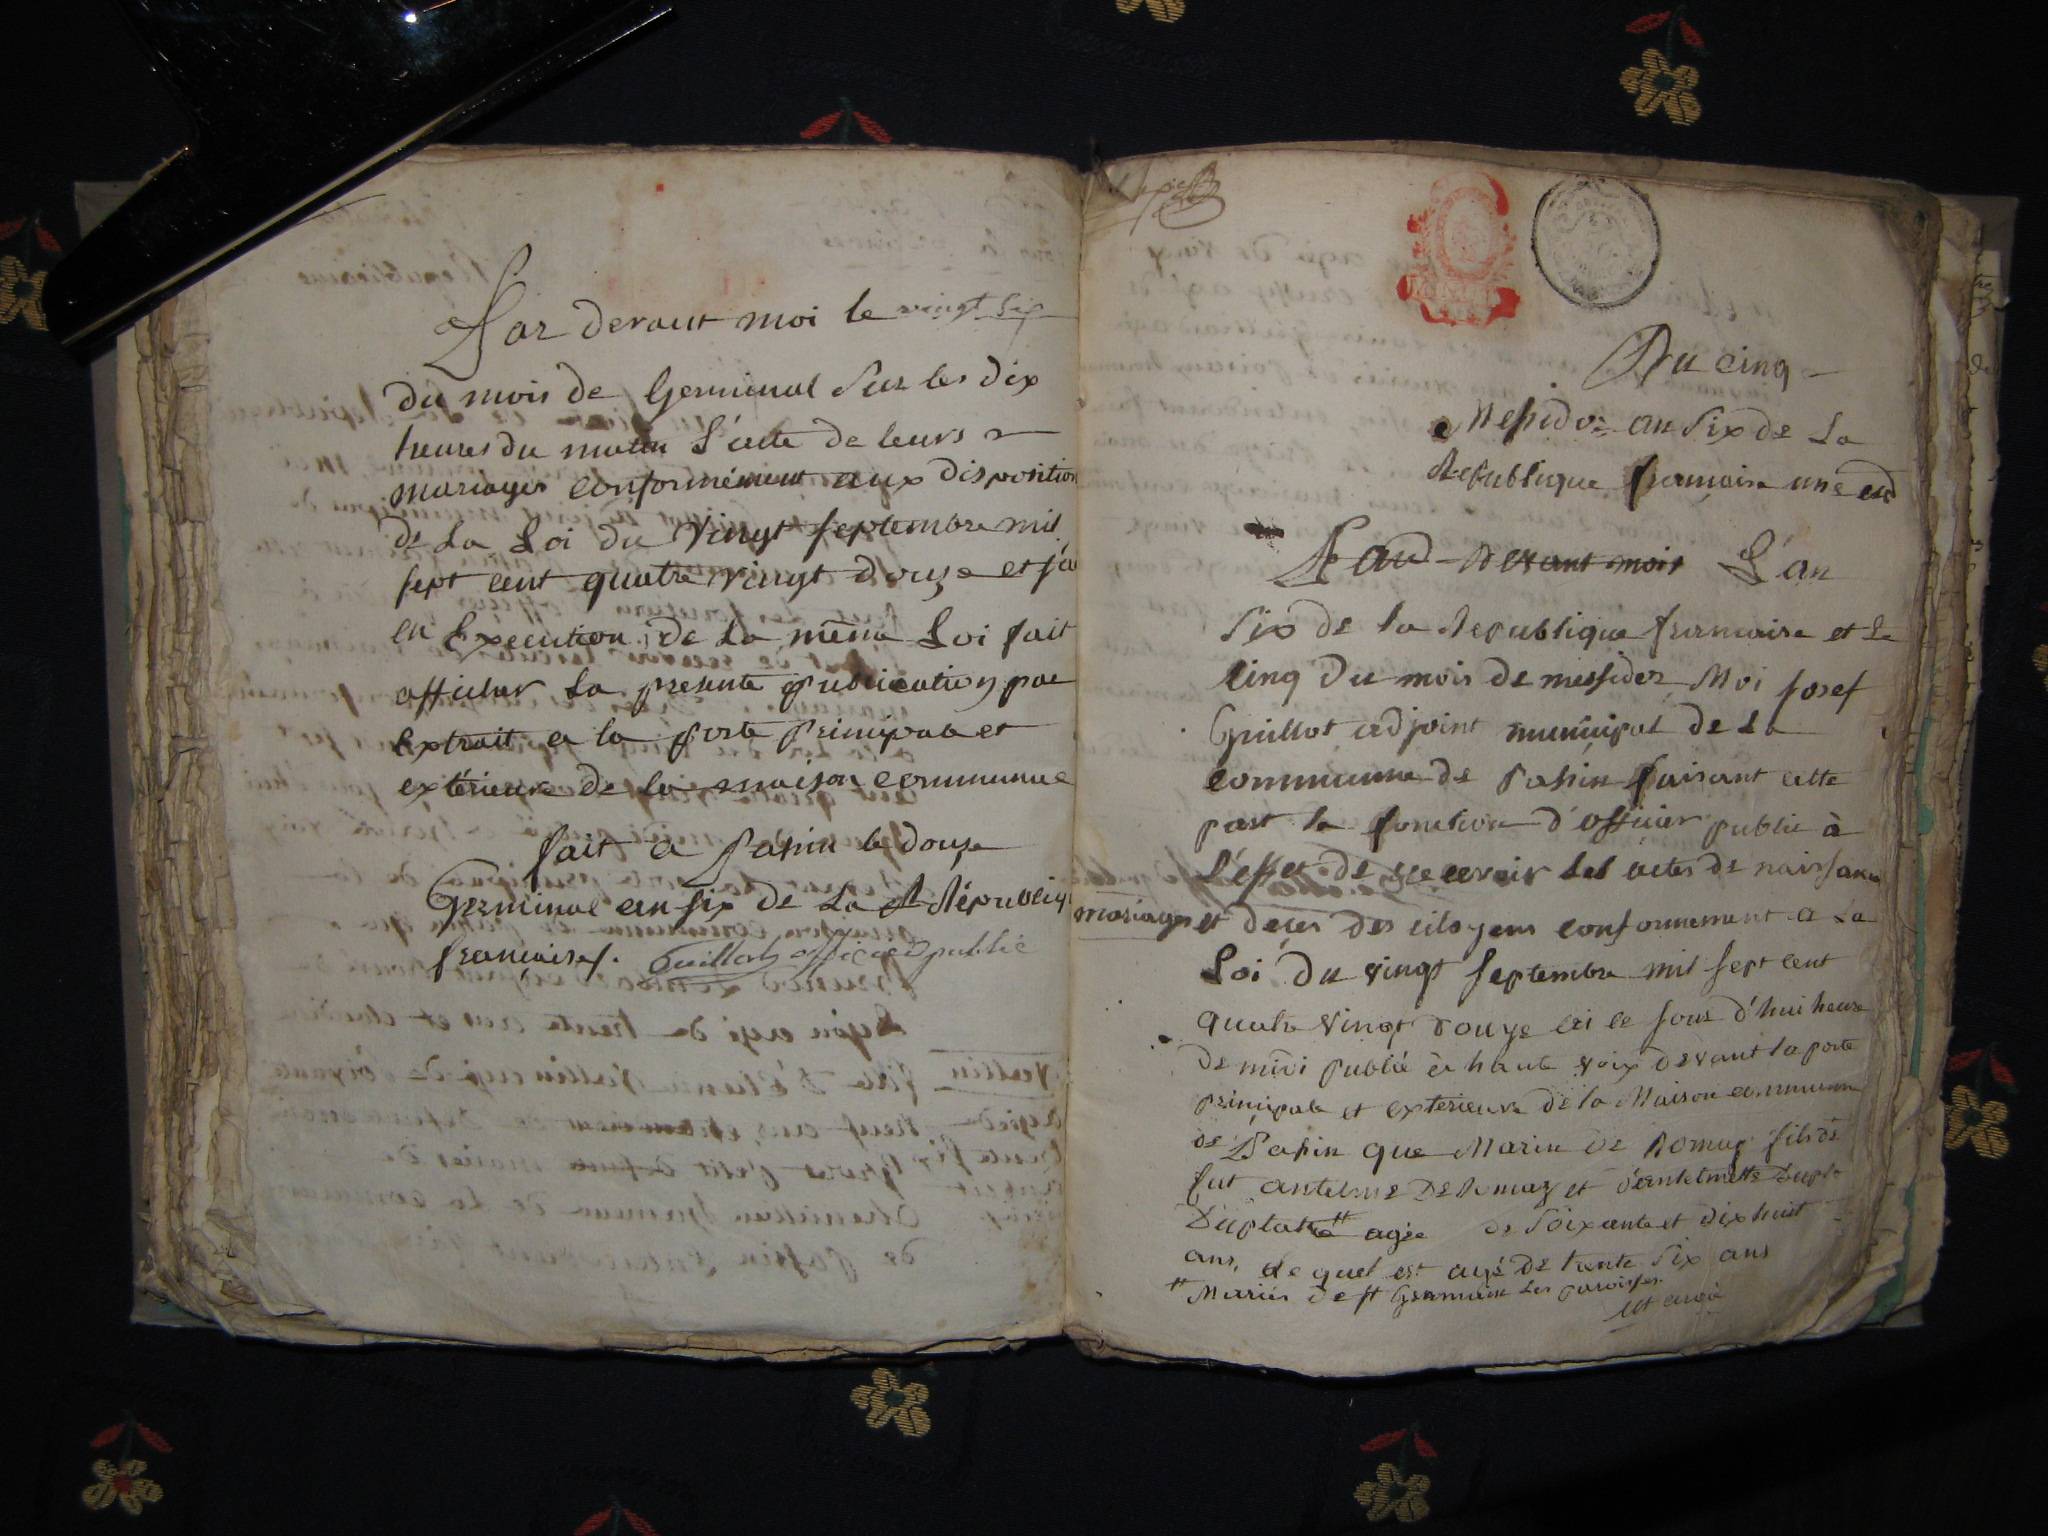 Par devant moi le vingt six
du mois de Germinal sur les dix
heures du matin l'acte de leurs
mariages conformément aux disposition
de la Loi du Vingt septembre mil
sept cent quatre vingt douze et j'a
en Execution de la même Loi fait
afficher la presente publication par
extrait a la porte principale et
extérieure de la maison commune
fait a passin le douze
Germinal an six de la République
françaises. Guillot officier public
Du cinq
Messidor an six de la
Republique française une
Par devant moi L'an
six de la Republique francaise et le
cinq Du mois de messidor Moi josef
Guillot adjoint municipal de la
commune de passin faisant cette
part la fonction d'officier public à
l'effet de recevoir les actes de naissance
mariages et deces des citoyens conformement a la
Loi du vingt septembre mil sept cent
quatre vingt douze ai ce jour d'hui heure
de midi publié à haute voix devant la porte
principale et exterieure de la Maison commune
de Passin que Marin de Romay fils de
fut antelme De Romay et d'antelmette Dupl
Duplatre # agée de soixante et dix huit
ans, Le quel est agé de trente six ans
# Mariés de st Germain les paroisses